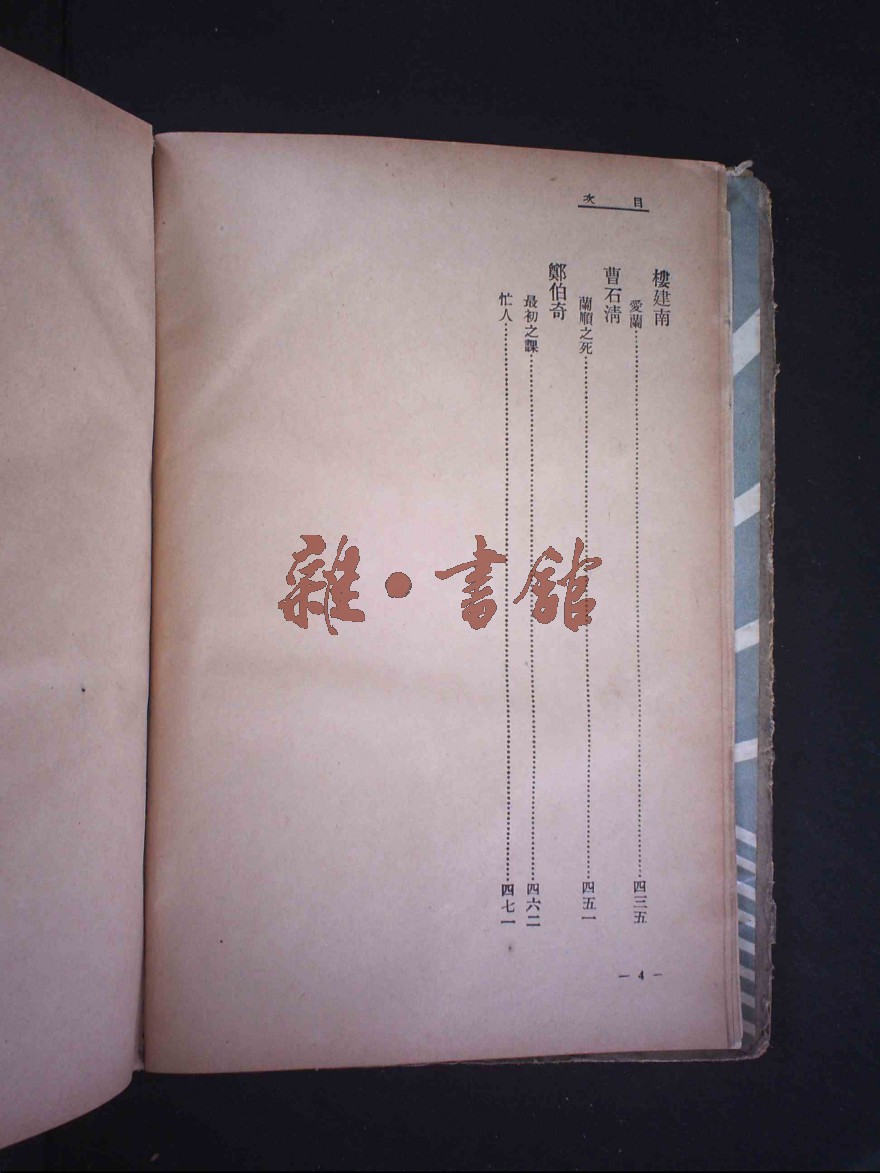 目次
樓建南
愛蘭……四三五
曹石清
蘭順之死……四五一
鄭伯奇
最初之課……四六二
忙人……四七一
— 4 —
雜・書館